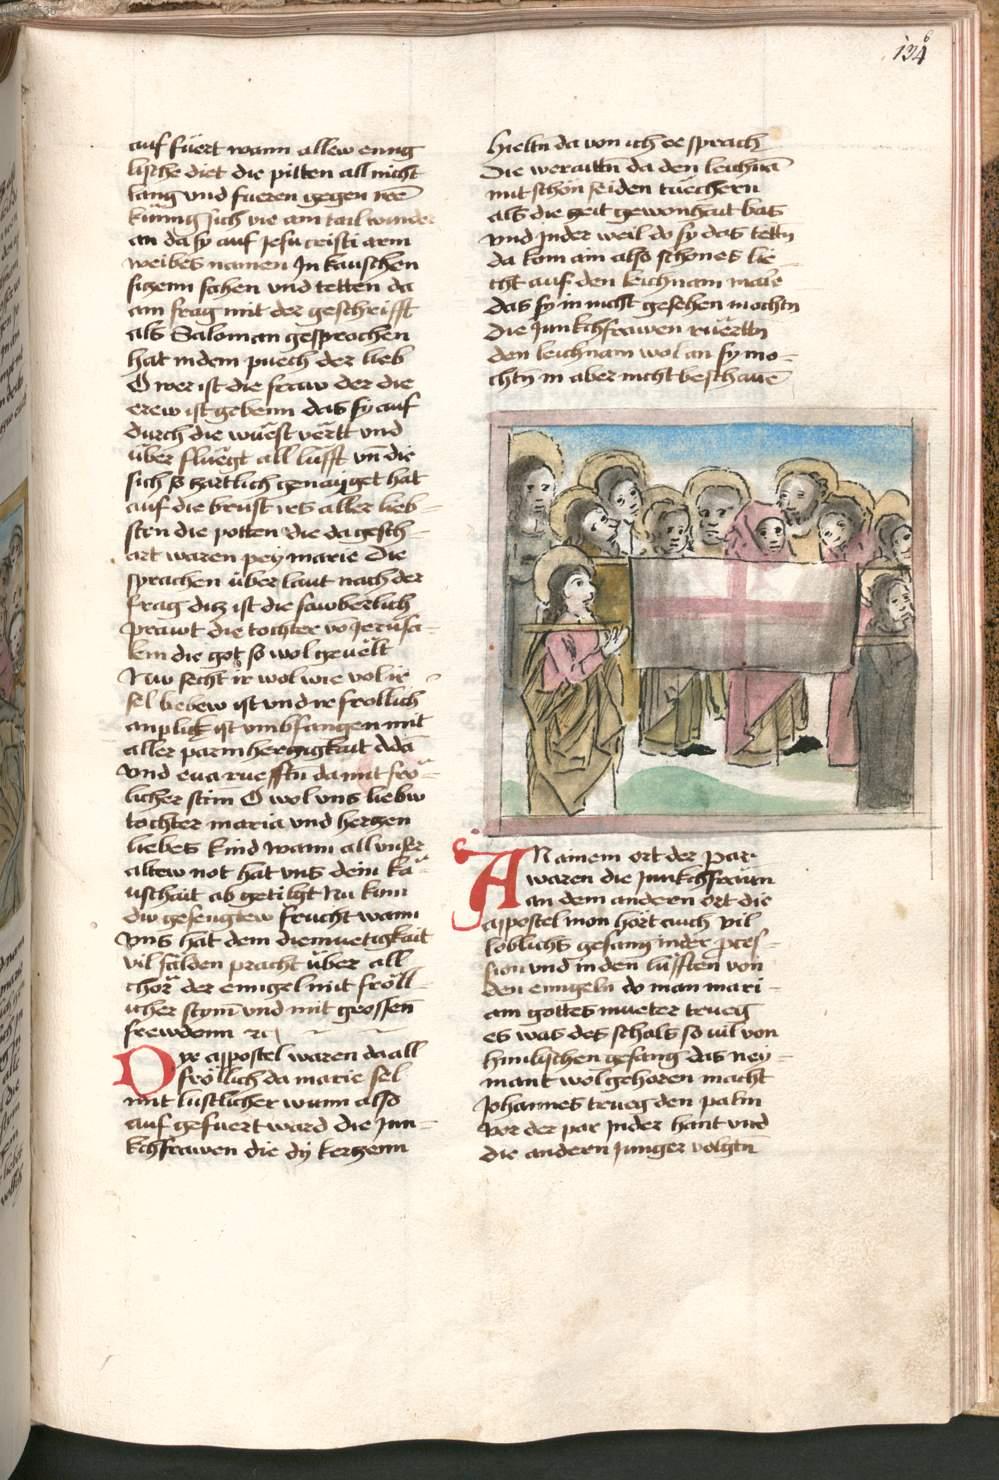 134
auf füert wann allew enng
lische diet die pilten all nicht
lang vnd fueren gegen
künng sich
an da sy auf Jesu cristi arm
weibes namen In kauschen
sahen vnd tetten da
ain frag mit der geschrifft
als Saloman gesprochen
hat in dem puech der lieb
O wer ist die fraw der die
erew ist gebenn das sy auf
durch die wüest vertt vnd
über fluegt all lufft vn die
sich so zärtlich genaiget hat
auf die brust irs aller lieb
sten die potten die da gesch
art waren pey marie Die
sprachen über laut nach der
frag ditz ist die sawberlich
prawt die tochter vo Jerusa
lem die got so wol geuelt
Nuw secht ir wol wie vol ir
sel ist vnd ir frollich
anplick ist vmbfangen mit
aller parmherczigkait Adā
vnd eua ruefftn da mit frö
licher stim O wol vns liebw
tochter maria vnd herczen
liebes kind wann all vnser
altew not hat vns dein ka
uschait ab getilgt Nu kum
du gesengtew frucht wann
vns hat dein diemuetigkait
vil sälden pracht über all
chör der enngel mit fröll
icher stym vnd mit grossen
frewdenn
Dye apostel waren da all
fröllich da marie sel
mit lustlicher wunn also
auf gefuert ward die Jun
kchfrawen die dy kerczenn
hieltn da von ich ee sprach
Die da den leichnā
mit schön seiden tüechern
als die zeit gewonhait bas
vnd In der weil do sy das tettn
da kom ain also schönes lie
cht auf den leichnam
das sy in nicht gesehen mochtn
die Junkchfrawen rüertn
den leichnam wol an sy mo
chtn in aber nicht beschauē
An ainem ort der par
waren die Junkchfrawn
an dem andern ort die
apostel man hört auch vil
loblichs gesang in der
vnd in den lüfften von
den enngeln do man mari
am gottes mueter trueg
es was des schals so vil von
himlischen gesang das ney
mant wol gehoren macht
Johannes trueg den palm
vor der par In der hant vnd
die andern Junger volgtn